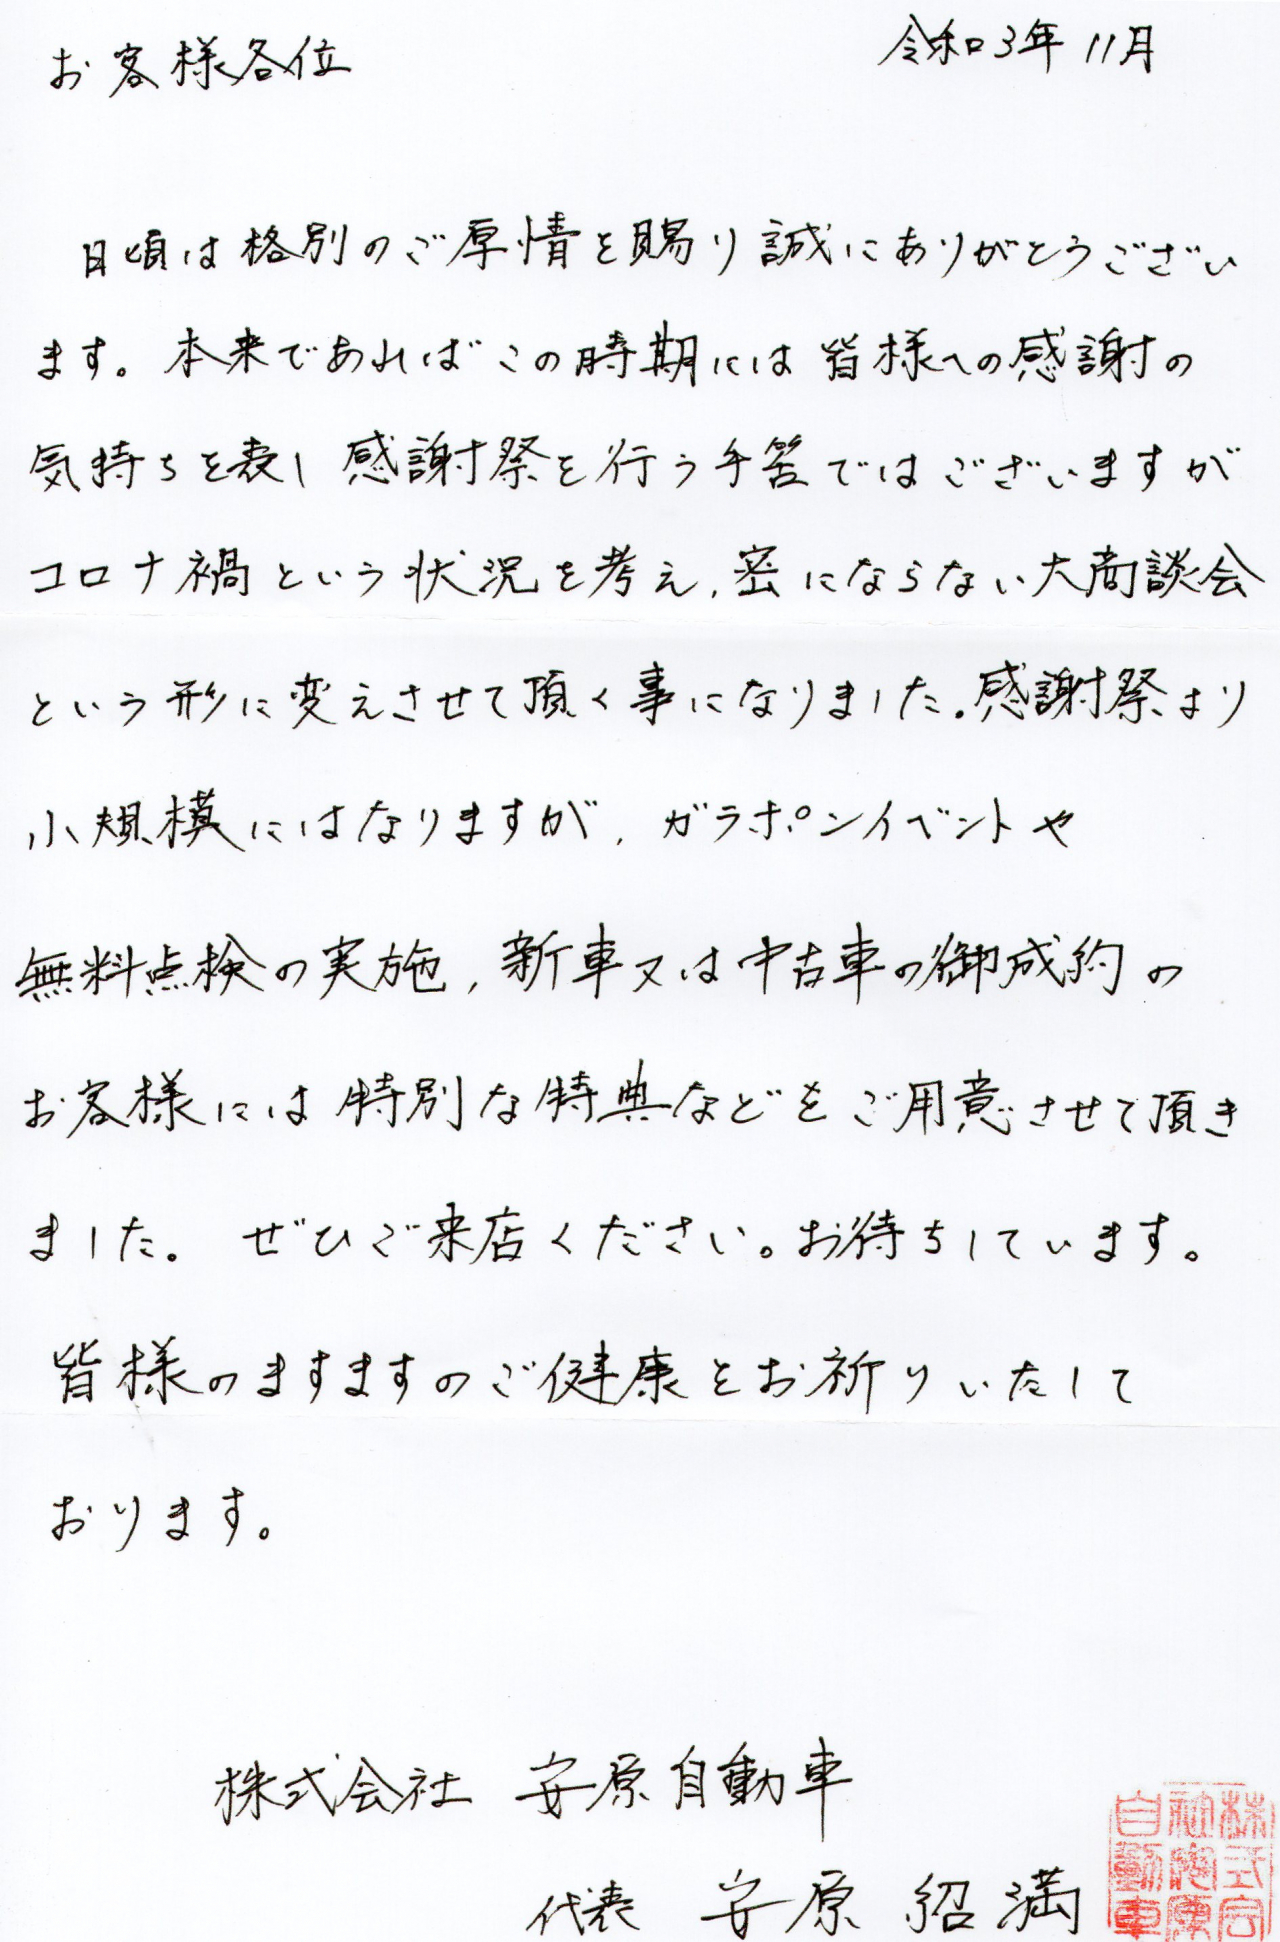 令和3年11月
お客様各位
日頃は格別のご厚情を賜り誠にありがとうござい
ます。本来であればこの時期には皆様への感謝の
気持ちを表し感謝祭を行う手筈ではございますが
コロナ禍という状況を考え、密にならない大商談会
という形に変えさせて頂く事になりました。感謝祭より
小規模にはなりますが、ガラポンイベントや
無料点検の実施、新車又は中古車の御成約の
お客様には特別な特典などをご用意させて頂き
ました。 ぜひご来店ください。お待ちしています。
皆様のますますのご健康とお祈りいたして
おります。
株式会社 安原自動車
代表 安原 紹満
株式会
社安原
自動車